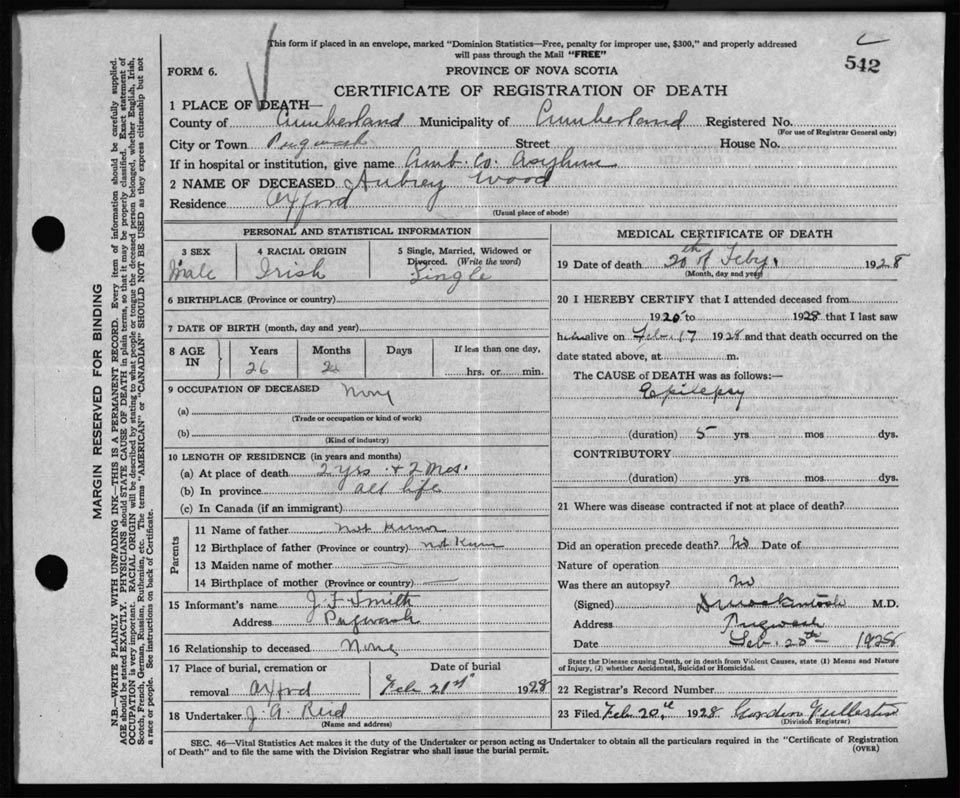 This form if placed in an envelope, marked "Dominion Statistics—Free, penalty for improper use, $300," and properly addressed
will pass through the Mail "FREE"
542
FORM 6.
PROVINCE OF NOVA SCOTIA
CERTIFICATE OF REGISTRATION OF DEATH
1 PLACE OF DEATH—
County of Cumberland Municipality of Cumberland Registered No.
(For use of Registrar General only)
City or Town Pugwash Street House No.
If in hospital or institution, give name Cumb. Co. Asylum
2 NAME OF DECEASED Aubrey Wood
Residence Oxford
(Usual place of abode)
PERSONAL AND STATISTICAL INFORMATION
3 SEX 4 RACIAL ORIGIN 5 Single, Married, Widowed or
Divorced. (Write the word)
Male Irish Single
6 BIRTHPLACE (Province or country)
7 DATE OF BIRTH (month, day and year)
8 AGE IN Years Months Days If less than one day,
26 2 hrs. or min.
9 OCCUPATION OF DECEASED None
(a)
(Trade or occupation or kind of work)
(b)
(Kind of industry)
10 LENGTH OF RESIDENCE (in years and months)
(a) At place of death 2 yrs. + 2 Mos.
(b) In province all life
(c) In Canada (if an immigrant)
Parents
11 Name of father not known
12 Birthplace of father (Province or country) not
13 Maiden name of mother —
14 Birthplace of mother (Province or country) —
15 Informant's name J. F. Smith
Address Pugwash
16 Relationship to deceased None
17 Place of burial, cremation or Date of burial
removal Oxford Feb 21st 1928
18 Undertaker J. A. Reid
(Name and address)
MEDICAL CERTIFICATE OF DEATH
19 Date of death 20th of Feby. 1928
(Month, day and year)
20 I HEREBY CERTIFY that I attended deceased from
1920 to 1928 that I last saw
him alive on Feb. 17 1928 and that death occurred on the
date stated above, at m.
The CAUSE of DEATH was as follows:—
Epilepsy
(duration) 5 yrs. mos dys.
CONTRIBUTORY
(duration) yrs. mos dys.
21 Where was disease contracted if not at place of death?
Did an operation precede death? No Date of
Nature of operation
Was there an autopsy? no
(Signed) M.D.
Address Pugwash
Date Feb. 25th 1928
State the Disease causing Death, or in death from Violent Causes, state (1) Means and Nature
of Injury, (2) whether Accidental, Suicidal or Homicidal.
22 Registrar's Record Number
23 Filed Feb 20, 1928 Gordon
(Division Registrar)
SEC. 46—Vital Statistics Act makes it the duty of the Undertaker or person acting as Undertaker to obtain all the particulars required in the "Certificate of Registration
of Death" and to file the same with the Division Registrar who shall issue the burial permit.
(OVER)
MARGIN RESERVED FOR BINDING
N.B.—WRITE PLAINLY WITH UNFADING INK—THIS IS A PERMANENT RECORD. Every item of information should be carefully supplied.
AGE should be stated EXACTLY. PHYSICIANS should STATE CAUSE OF DEATH in plain terms, so that it may be properly classified. Exact statement of
OCCUPATION is very important. RACIAL ORIGIN will be described by stating to what people or tongue the deceased person belonged, whether English, Irish,
Scotch, French, German, Russian, Ruthenian, etc. The terms "AMERICAN" or "CANADIAN" SHOULD NOT BE USED as they express citizenship but not
a race or people. See instructions on back of Certificate.